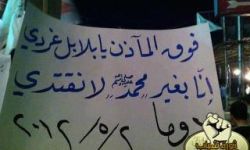 فوق المآذن يا بلابل غردي
إنا بغير محمد ﷺ لا نقتدي
دوما ٢/٥/٢٠١٢